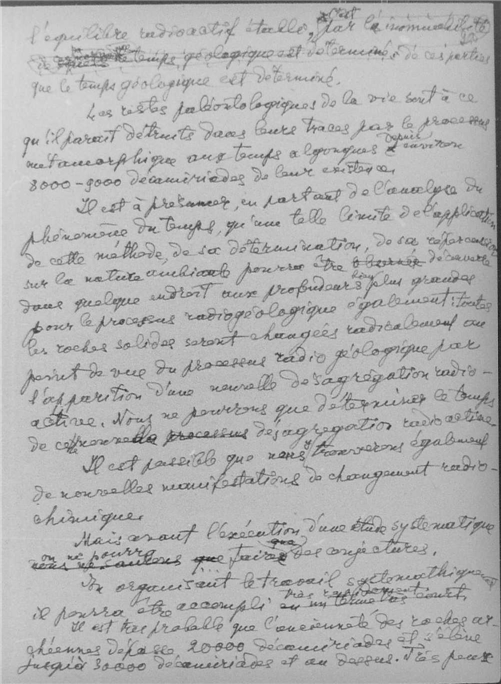 l'équilibre radioactif établi, c'est par la
temps géologique est déterminé, de ces parties
que le temps géologique est déterminé.
Les restes paléontologiques de la vie sont à ce
qu'il paraît détruits dans leurs traces par le processus
métamorphique aux temps algonques depuis environ
8000-9000 décamiriades de leur existence.
Il est à présumer, en partant de l'analyse du
phénomène du temps, qu'une telle limite de l'application
de cette méthode, de sa détermination, de sa répercussion
sur la nature ambiante pourra être découverte
dans quelque endroit aux profondeurs plus grandes
pour le processus radiogéologique également: toutes
les roches solides seront changées radicalement au
point de vue du processus radiogéologique par
l'apparition d'une nouvelle désagrégation radio-
active. Nous ne pourrons que déterminer le temps
de cette nouvelle désagrégation radioactive.
Il est possible que nous trouverons également
de nouvelles manifestations de changement radio-
chimique.
Mais avant l'exécution d'une étude systématique
on ne pourra que faire des conjectures.
En organisant le travail systématique
il pourra être accompli très rapidement
Il est très probable que l'ancienneté des roches ar-
chéennes dépasse 20000 décamiriades et s'élève
jusqu'à 30000 décamiriades et au dessus. Très peu